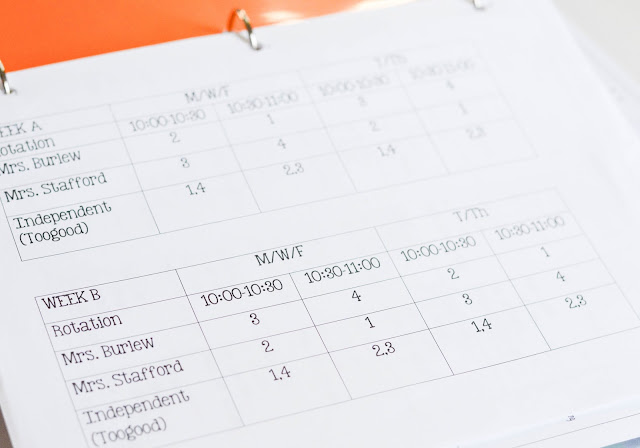 EEK A M/W/F T/Th
otation 10:00-10:30 10:30-11:00 10:00-10:30 10:30-11:00
Mrs. Burlew 2 1 3 4
Mrs. Stafford 3 4 2 1
Independent 1,4 2,3 1,4 2,3
(Toogood)
WEEK B M/W/F T/Th
Rotation 10:00-10:30 10:30-11:00 10:00-10:30 10:30-11:00
Mrs. Burlew 3 4 2 1
Mrs. Stafford 2 1 3 4
Independent 1,4 2,3 1,4 2,3
(Toogood)